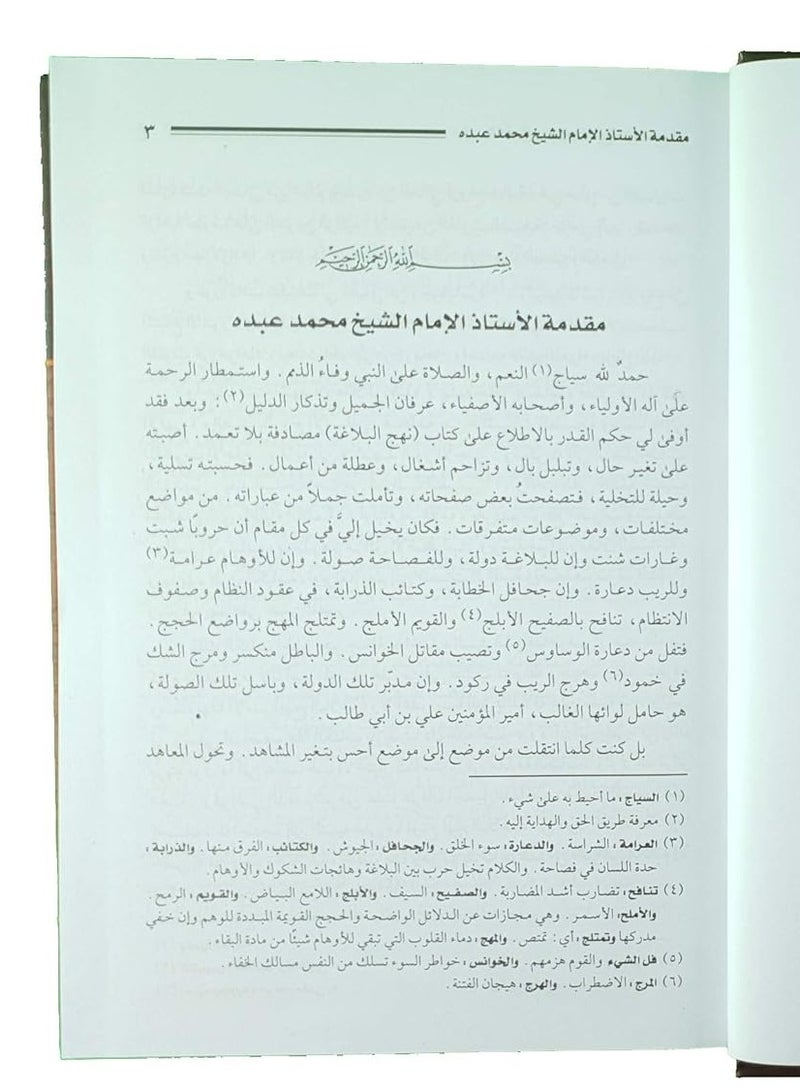 مقدمة الأستاذ الإمام الشيخ محمد عبده ٣
بسم الله الرحمن الرحيم
مقدمة الأستاذ الإمام الشيخ محمد عبده
حمدٌ لله سياج(١) النعم، والصلاة على النبي وفاءُ الذمم. واستمطار الرحمة
على آله الأولياء، وأصحابه الأصفياء، عرفان الجميل وتذكار الدليل(٢): وبعد فقد
أوفى لي حكم القدر بالاطلاع على كتاب (نهج البلاغة) مصادفة بلا تعمد. أصبته
على تغير حال، وتبلبل بال، وتزاحم أشغال، وعطلة من أعمال. فحسبته تسلية،
وحيلة للتخلية، فتصفحتُ بعض صفحاته، وتأملت جملاً من عباراته. من مواضع
مختلفات، وموضوعات متفرقات. فكان يخيل إليَّ في كل مقام أن حروبًا شبت
وغارات شنت وإن للبلاغة دولة، وللفصاحة صولة. وإن للأوهام عرامة(٣)
وللريب دعارة. وإن جحافل الخطابة، وكتائب الذرابة، في عقود النظام وصفوف
الانتظام، تنافح بالصفيح الأبلج(٤) والقويم الأملج. وتمتلج المهج برواضع الحجج.
فتفل من دعارة الوساوس(٥) وتصيب مقاتل الخوانس. والباطل منكسر ومرج الشك
في خمود(٦) وهرج الريب في ركود. وإن مدبّر تلك الدولة، وباسل تلك الصولة،
هو حامل لوائها الغالب، أمير المؤمنين علي بن أبي طالب.
بل كنت كلما انتقلت من موضع إلى موضع أحس بتغير المشاهد. وتحول المعاهد
(١) السياج: ما أحيط به على شيء.
(٢) معرفة طريق الحق والهداية إليه.
(٣) العرامة: الشراسة. والدعارة: سوء الخلق. والجحافل: الجيوش. والكتائب: الفرق منها. والذرابة:
حدة اللسان في فصاحة. والكلام تخيل حرب بين البلاغة وهائجات الشكوك والأوهام.
(٤) تنافح: تضارب أشد المضاربة. والصفيح: السيف. والأبلج: اللامع البياض. والقويم: الرمح.
والأملج: الأسمر. وهي مجازات عن الدلائل الواضحة والحجج القويمة المبددة للوهم وإن خفي
مدركها وتمتلج: أي: تمتص. والمهج: دماء القلوب التي تبقي للأوهام شيئًا من مادة البقاء.
(٥) فل الشيء والقوم هزمهم. والخوانس: خواطر السوء تسلك من النفس مسالك الخفاء.
(٦) المرج: الاضطراب. والهرج: هيجان الفتنة.